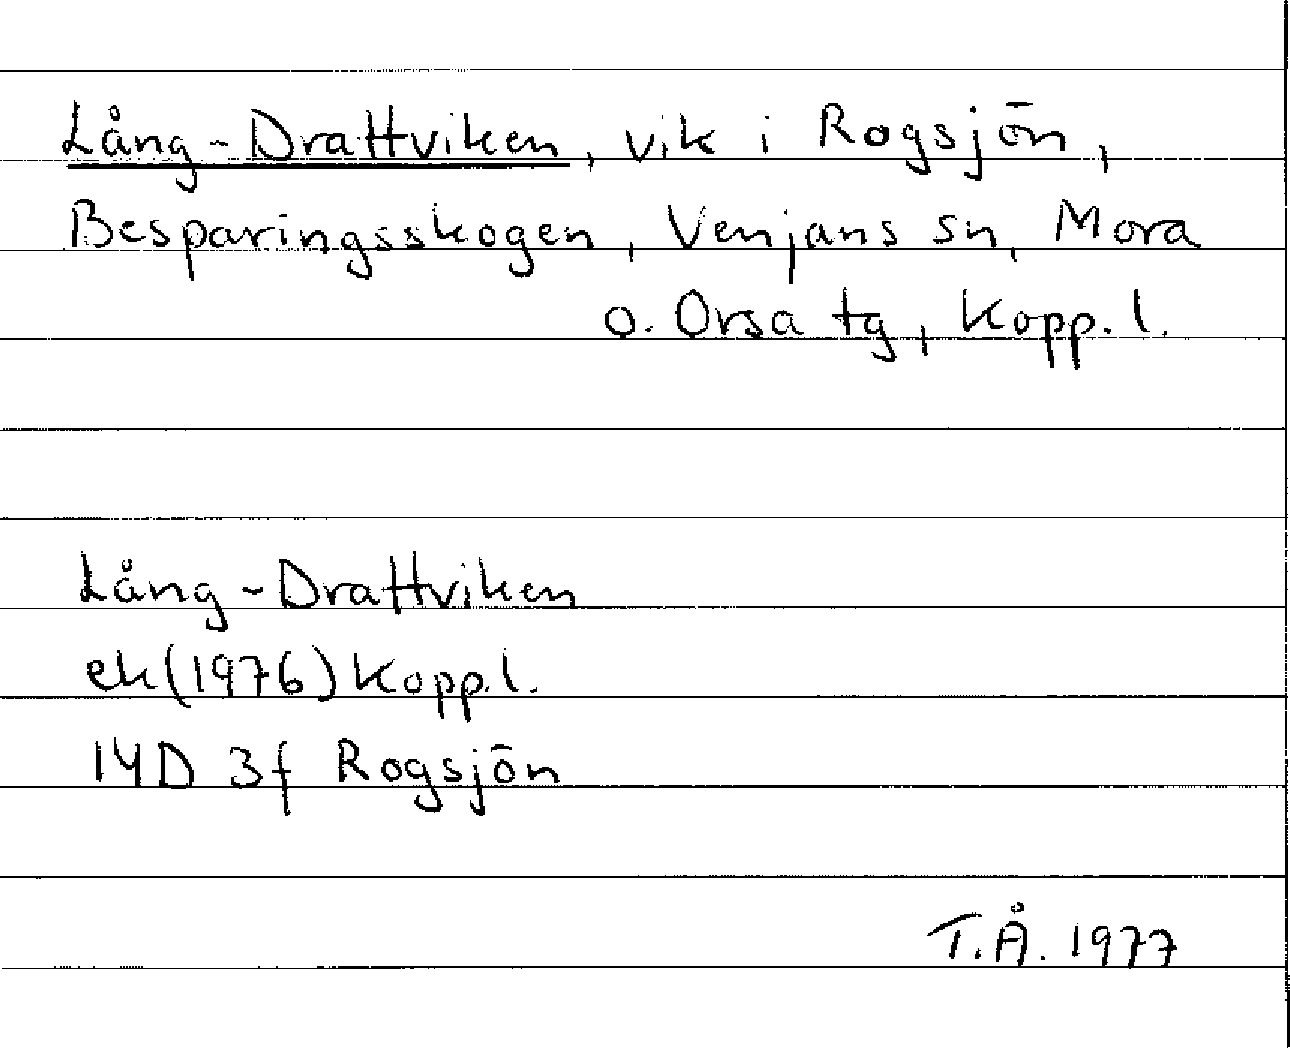 Lång-Drattviken, vik i Rogsjön,
Besparingsskogen, Venjans sn, Mora
o. Orsa tg, Kopp.l.
Lång-Drattviken
ek(1976)Kopp.l.
14D 3f Rogsjön
T.Å. 1977